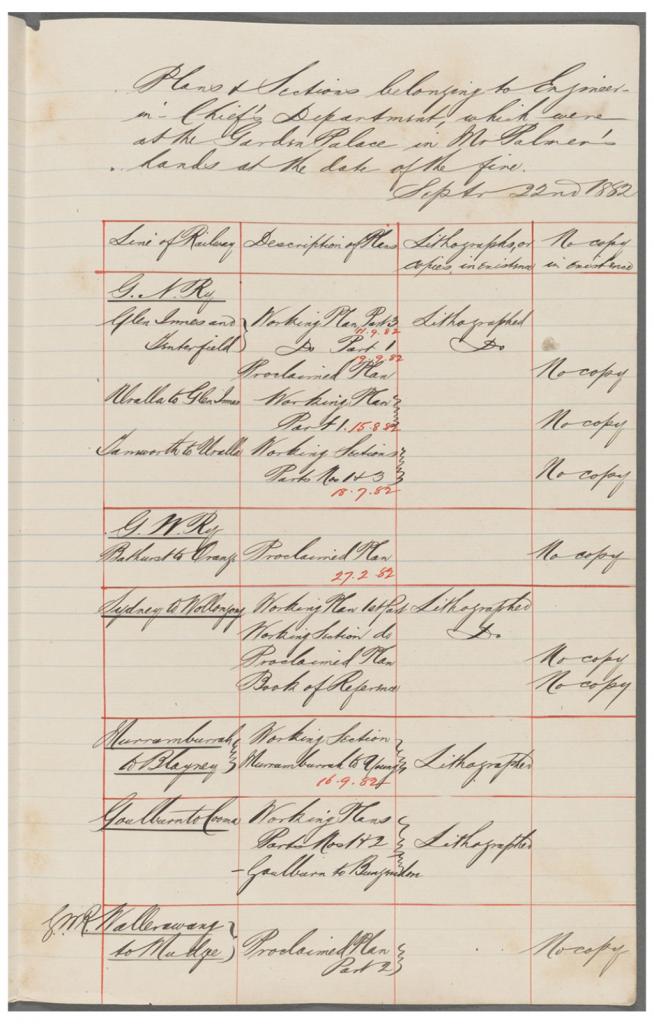 Plans & Sections belonging to Engineer-
in-Chief's Department, which were
at the Garden Palace in Mr Palmer's
hands at the date of the fire.
Septr 22nd 1882
Line of Railway Description of Plans Lithographs, or No copy
copies, in existence in existence
G. N. Ry
Glen Innes and Working Plan Part 3 Lithographed
11.9.82
Tenterfield Do Part 1 Do
9.82
Proclaimed Plan No copy
Uralla to Glen Innes Working Plan
Part 1. 15.8.82 No copy
Tamworth to Uralla Working Sections
Parts Nos 1 & 3 No copy
18.7.82
G. W. Ry
Bathurst to Orange Proclaimed Plan No copy
27.2.82
Sydney to Wollongong Working Plan 1st Part Lithographed
Working Section do Do
Proclaimed Plan No copy
Book of Reference No copy
Murramburrah Working Section
to Blayney Murramburrah to Young Lithographed
16.9.82
Goulburn to Cooma Working Plans
Parts Nos 1 & 2 Lithographed
- Goulburn to Bungendore
G.W.R. Wallerawang
to Mudgee Proclaimed Plan No copy
Part 2